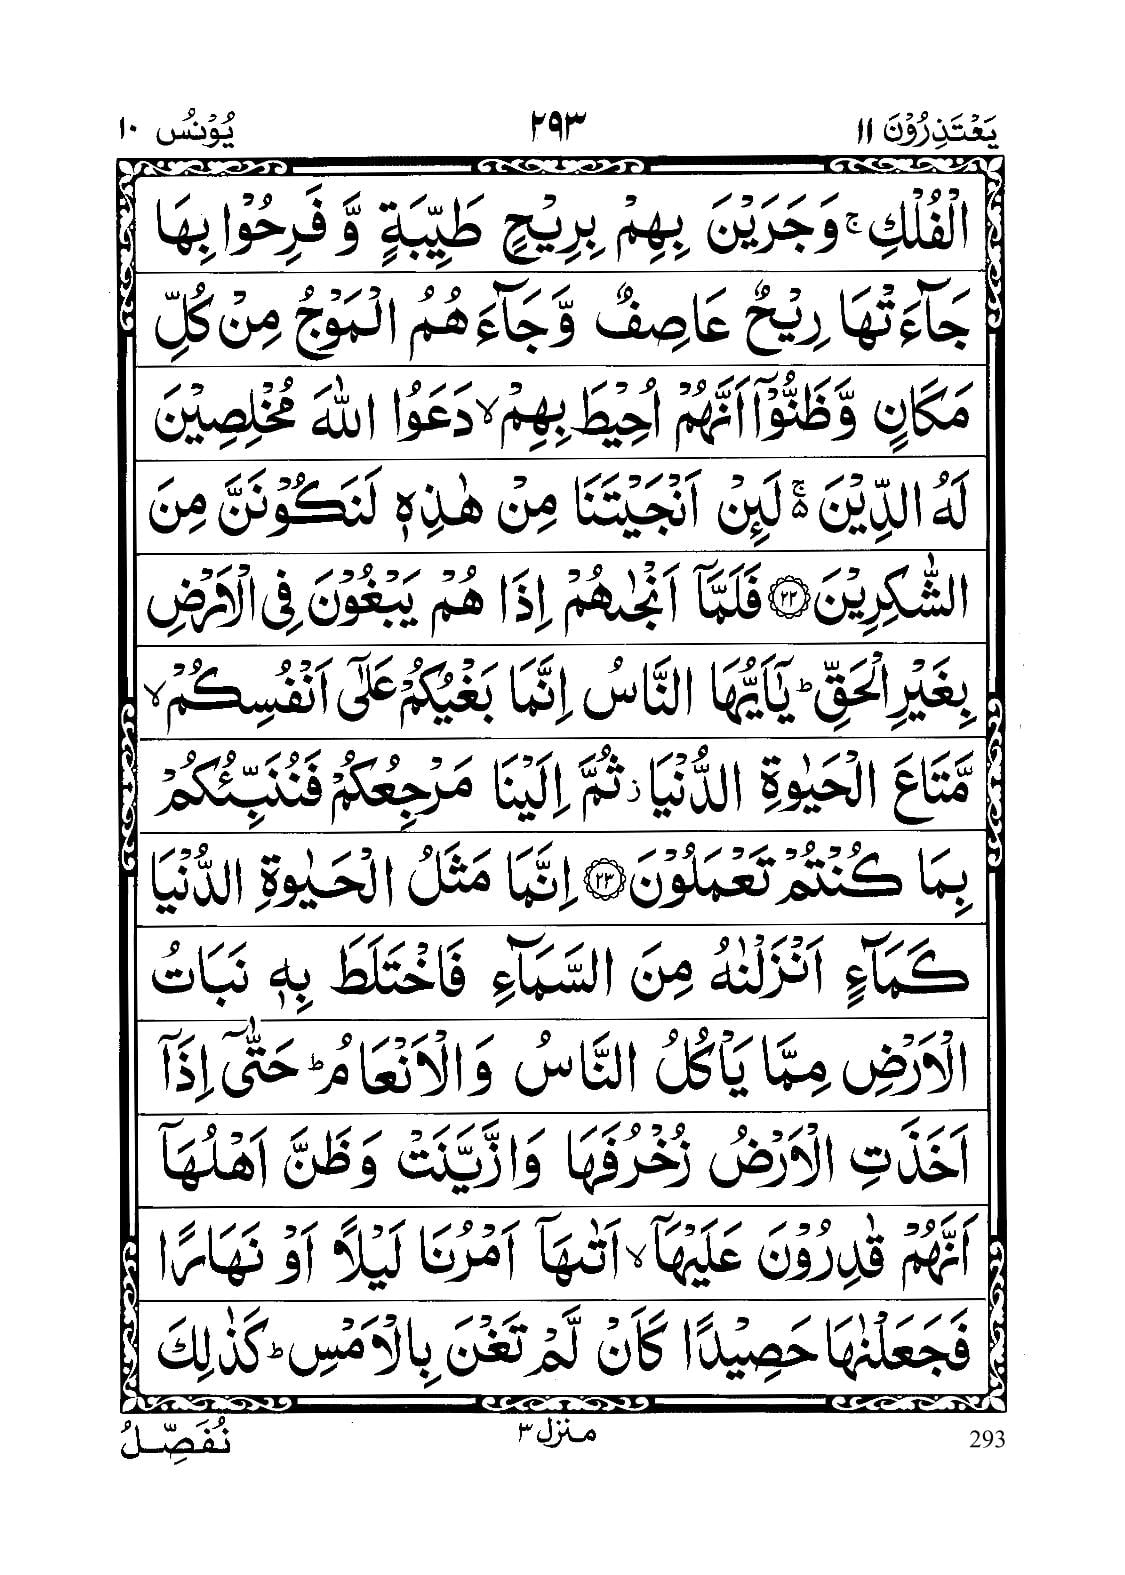 يَعْتَذِرُوْنَ ١١ ٢٩٣ يُوْنُس ١٠
الْفُلْكِ ۚ وَجَرَيْنَ بِهِمْ بِرِيْحٍ طَيِّبَةٍ وَّ فَرِحُوْا بِهَا
جَآءَتْهَا رِيْحٌ عَاصِفٌ وَّجَآءَهُمُ الْمَوْجُ مِنْ كُلِّ
مَكَانٍ وَّظَنُّوْٓا اَنَّهُمْ اُحِيْطَ بِهِمْ ۙ دَعَوُا اللّٰهَ مُخْلِصِيْنَ
لَهُ الدِّيْنَ ۚ۬ لَىِٕنْ اَنْجَيْتَنَا مِنْ هٰذِهٖ لَنَكُوْنَنَّ مِنَ
الشّٰكِرِيْنَ ﴿٢٢﴾ فَلَمَّآ اَنْجٰىهُمْ اِذَا هُمْ يَبْغُوْنَ فِى الْاَرْضِ
بِغَيْرِ الْحَقِّ ؕ يٰٓاَيُّهَا النَّاسُ اِنَّمَا بَغْيُكُمْ عَلٰٓى اَنْفُسِكُمْ ۙ
مَّتَاعَ الْحَيٰوةِ الدُّنْيَا ؗ ثُمَّ اِلَيْنَا مَرْجِعُكُمْ فَنُنَبِّئُكُمْ
بِمَا كُنْتُمْ تَعْمَلُوْنَ ﴿٢٣﴾ اِنَّمَا مَثَلُ الْحَيٰوةِ الدُّنْيَا
كَمَآءٍ اَنْزَلْنٰهُ مِنَ السَّمَآءِ فَاخْتَلَطَ بِهٖ نَبَاتُ
الْاَرْضِ مِمَّا يَاْكُلُ النَّاسُ وَالْاَنْعَامُ ؕ حَتّٰٓى اِذَآ
اَخَذَتِ الْاَرْضُ زُخْرُفَهَا وَازَّيَّنَتْ وَظَنَّ اَهْلُهَآ
اَنَّهُمْ قٰدِرُوْنَ عَلَيْهَآ ۙ اَتٰىهَآ اَمْرُنَا لَيْلًا اَوْ نَهَارًا
فَجَعَلْنٰهَا حَصِيْدًا كَاَنْ لَّمْ تَغْنَ بِالْاَمْسِ ؕ كَذٰلِكَ
293 منزل ٣ نُفَصِّلُ